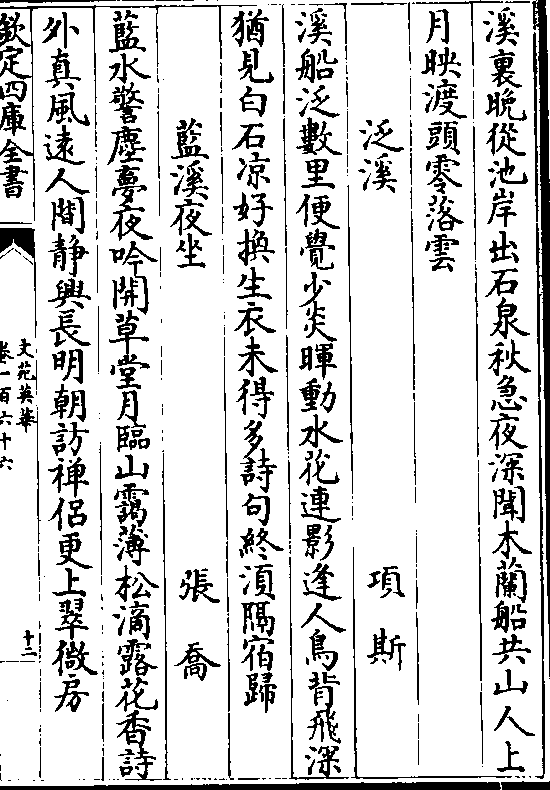 溪裏晚從池岸出石泉秋急夜深聞木蘭船共山人上
月映渡頭零落雲
泛溪　項斯
溪船泛數里便覺少炎暉動水花連影逢人鳥背飛深
猶見白石凉好換生衣未得多詩句終須隔宿歸
藍溪夜坐　張喬
藍水警塵夢夜吟開草堂月臨山靄薄松滴露花香詩
外真風遠人間靜興長明朝訪禪侶更上翠微房
欽定四庫全書
文苑英華
卷一百六十六
十二